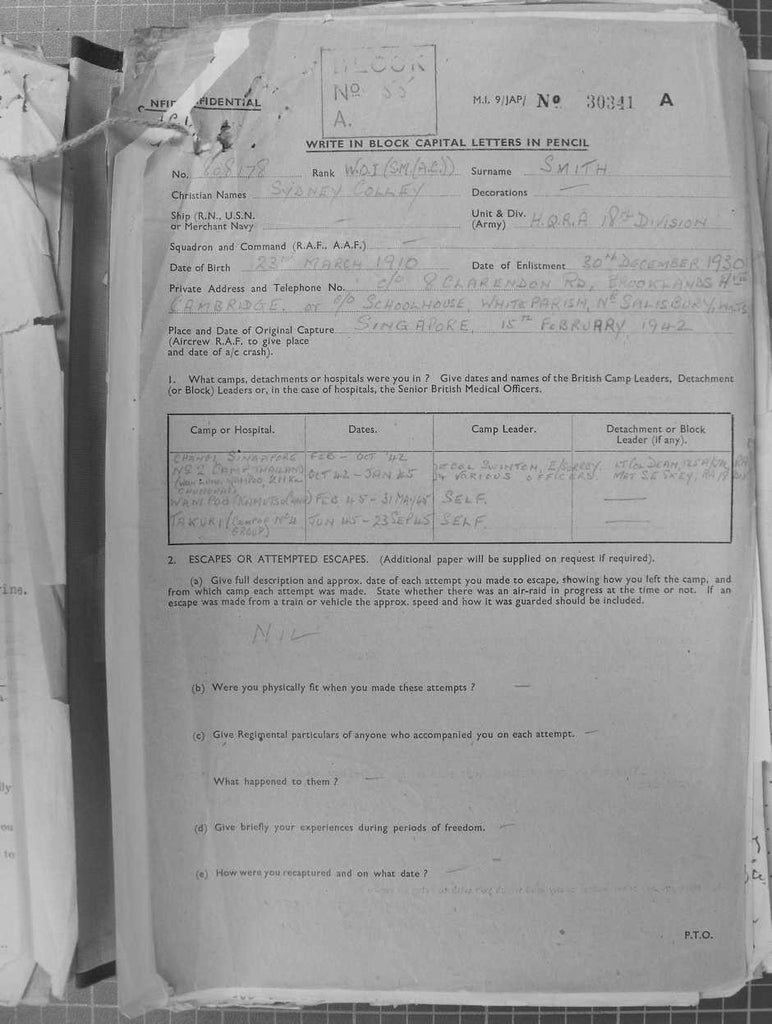 BLOCK
Nº 55
A.
NFIDENTIAL
M.I. 9/JAP/ Nº 30341 A
WRITE IN BLOCK CAPITAL LETTERS IN PENCIL
No. Rank W.O.I (S.M.(A.C.)) Surname SMITH
Christian Names SYDNEY COLLEY Decorations —
Ship (R.N., U.S.N. or Merchant Navy — Unit & Div. (Army) H.Q.R.A 18TH DIVISION
Squadron and Command (R.A.F., A.A.F.) —
Date of Birth 23RD MARCH 1910 Date of Enlistment 30TH DECEMBER 1930
Private Address and Telephone No. c/o 8 CLARENDON RD, BROOKLANDS AVE
CAMBRIDGE. or c/o SCHOOLHOUSE, WHITEPARISH, NR SALISBURY, WILTS
Place and Date of Original Capture SINGAPORE, 15TH FEBRUARY 1942
(Aircrew R.A.F. to give place
and date of a/c crash).
1. What camps, detachments or hospitals were you in ? Give dates and names of the British Camp Leaders, Detachment
(or Block) Leaders or, in the case of hospitals, the Senior British Medical Officers.
Camp or Hospital. Dates. Camp Leader. Detachment or Block
Leader (if any).
CHANGI SINGAPORE FEB – OCT '42
NO 2 CAMP THAILAND OCT 42 – JAN 45 LT COL SWINTON, E/SURREY. LT COL DEAN,
CHUNGKAI) & VARIOUS OFFICERS.
FEB 45 – 31 MAY 45 SELF. —
TAKURI (GROUP Nº 4 JUN 45 – 23 SEP 45 SELF —
GROUP)
2. ESCAPES OR ATTEMPTED ESCAPES. (Additional paper will be supplied on request if required).
(a) Give full description and approx. date of each attempt you made to escape, showing how you left the camp, and
from which camp each attempt was made. State whether there was an air-raid in progress at the time or not. If an
escape was made from a train or vehicle the approx. speed and how it was guarded should be included.
NIL
(b) Were you physically fit when you made these attempts ? —
(c) Give Regimental particulars of anyone who accompanied you on each attempt. —
What happened to them ? —
(d) Give briefly your experiences during periods of freedom. —
(e) How were you recaptured and on what date ? —
P.T.O.